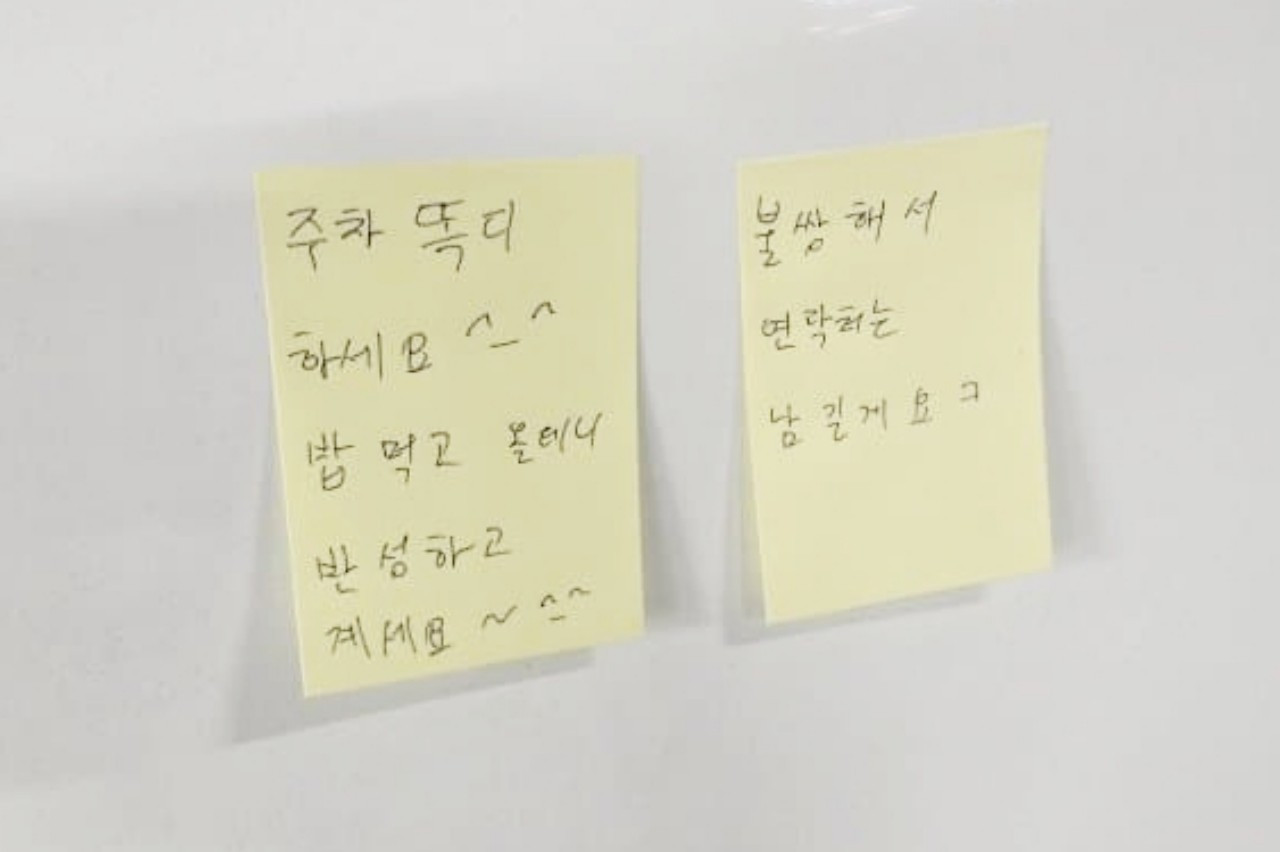 주차 똑디
하세요 ^_^
밥 먹고 올테니
반성하고
계세요 ~ ^_^
불쌍해서
연락처는
남길게요 ㅋ